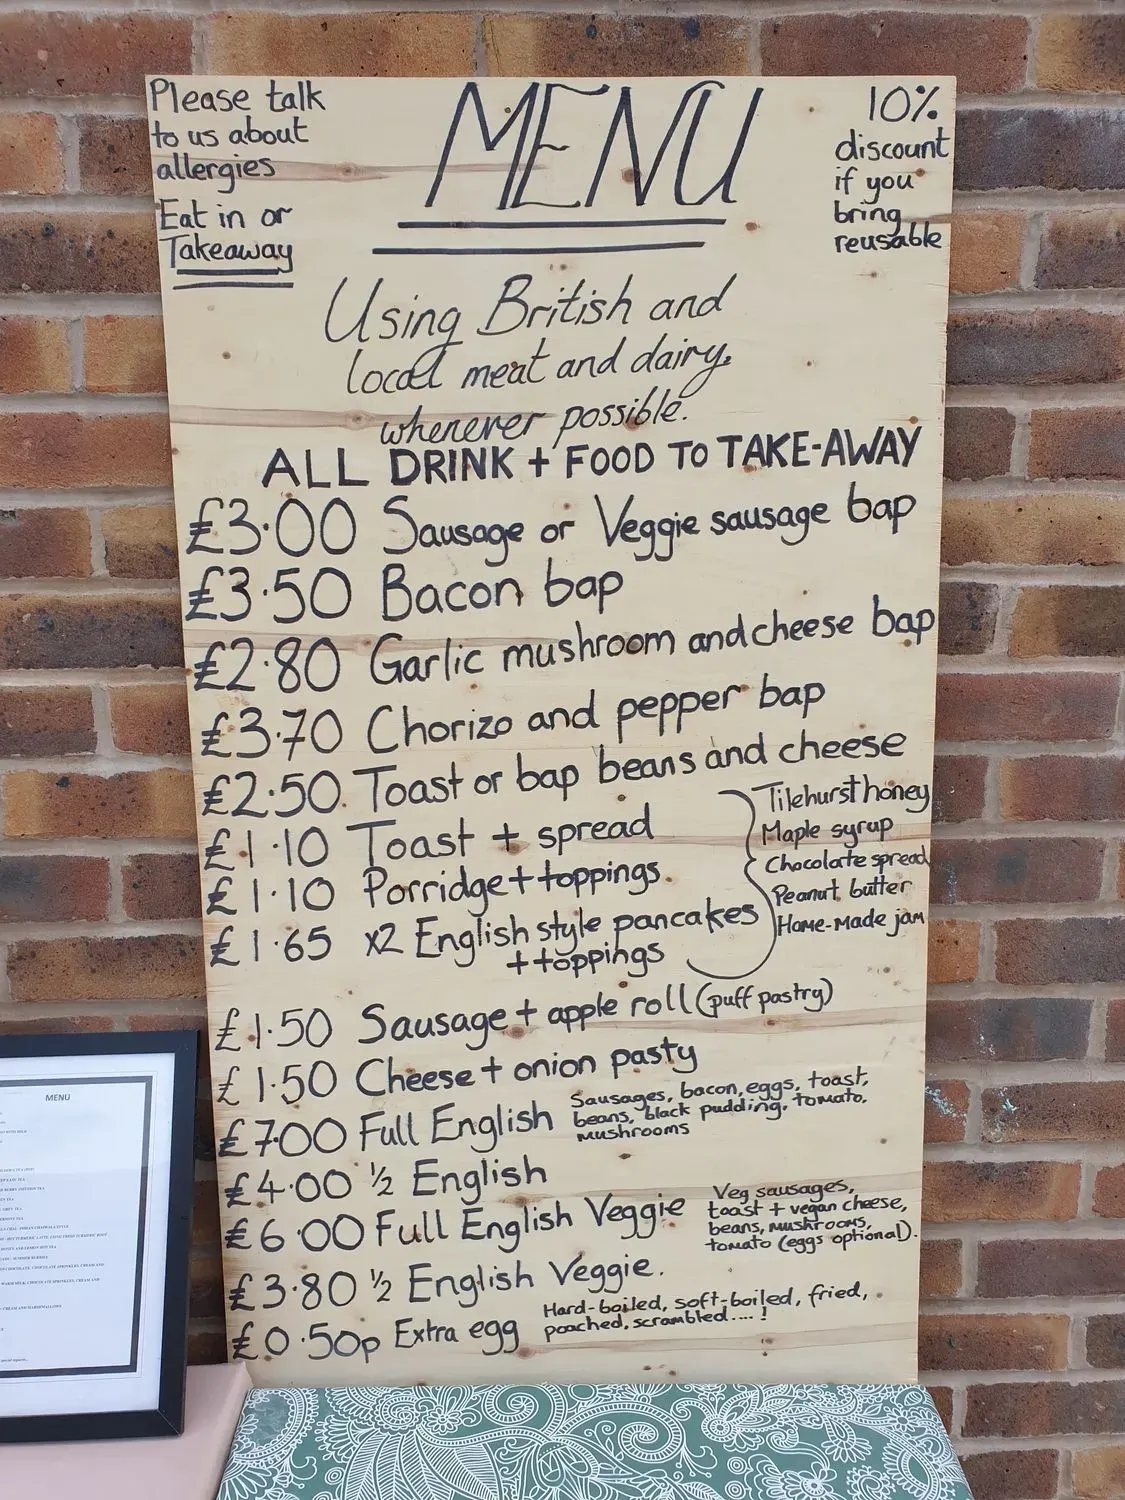 Please talk
to us about
allergies
Eat in or
Takeaway
MENU
10%
discount
if you
bring
reusable
Using British and
local meat and dairy,
whenever possible.
ALL DRINK + FOOD TO TAKE-AWAY
£3.00 Sausage or Veggie sausage bap
£3.50 Bacon bap
£2.80 Garlic mushroom and cheese bap
£3.70 Chorizo and pepper bap
£2.50. Toast or bap beans and cheese
£1.10 Toast + spread
£1.10 Porridge + toppings.
£1.65 x2 English style pancakes
+ toppings
Tilehurst honey
Maple syrup
Chocolate spread
Peanut butter
Home-Made jam
£1.50 Sausage + apple roll (puff pastry)
£1.50 Cheese + onion pasty
£7.00 Full English
Sausages, bacon, eggs, toast,
beans, black pudding, tomato,
mushrooms
£4.00 ½ English
£6.00 Full English Veggie
Veg sausages,
toast + vegan cheese,
beans, mushrooms,
tomato (eggs optional).
£3.80 ½ English Veggie.
£0.50p Extra egg
Hard-boiled, soft-boiled, fried,
poached, scrambled....!
MENU